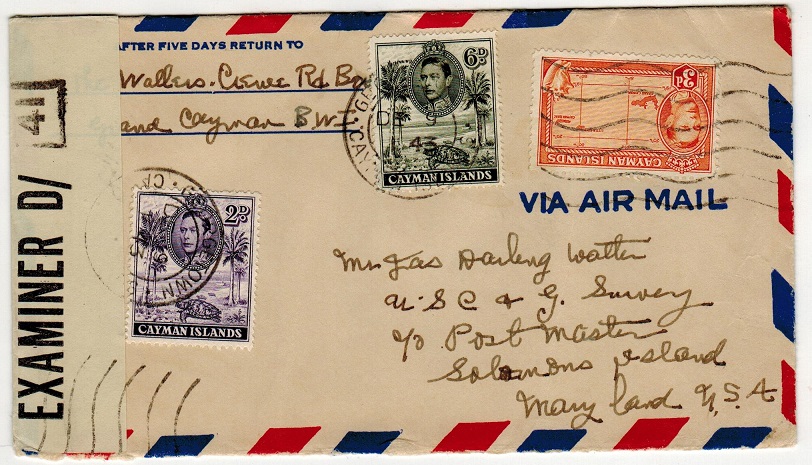 AFTER FIVE DAYS RETURN TO
Walters. Crewe Rd Box
Grand Cayman B W I
EXAMINER D/ 41
6D
CAYMAN ISLANDS
3D
CAYMAN ISLANDS
VIA AIR MAIL
2D
CAYMAN ISLANDS
Mr Jas Darling Watter
U.S C & G. Survey
c/o Post Master
Solomons Island
Maryland U.S.A